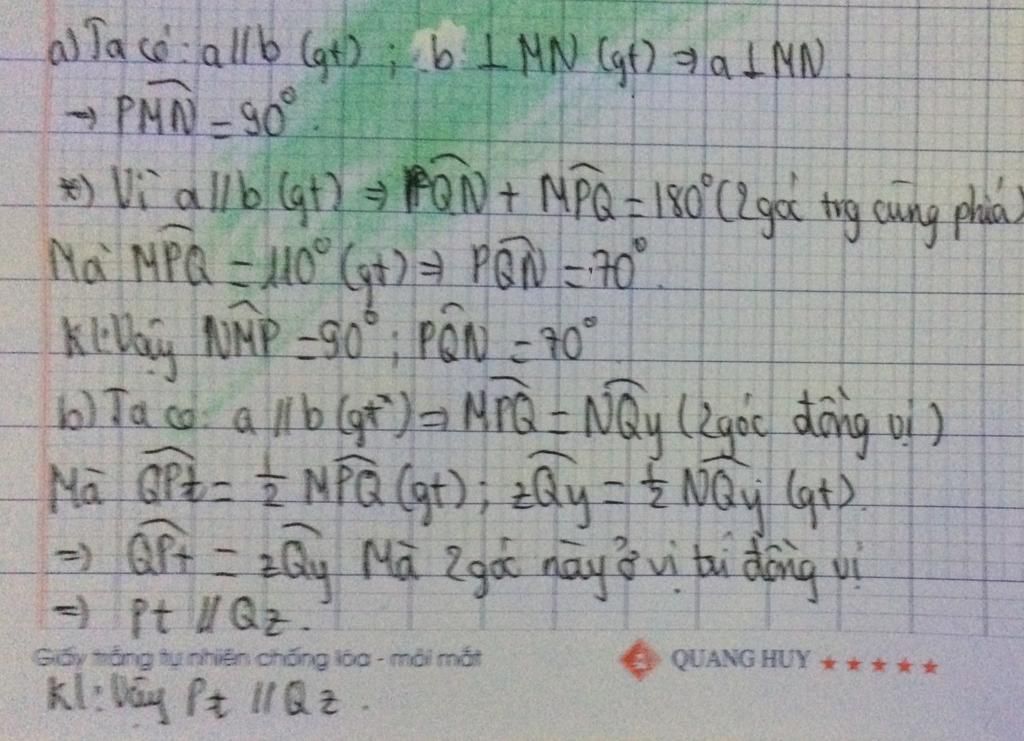 a) Ta có: a//b (gt) ; b ⊥ MN (gt) ⇒ a ⊥ MN.
→ PM̂N = 90°.
*) Vì a//b (gt) ⇒ PQ̂N + MP̂Q = 180° (2 góc trg cùng phía)
Mà MP̂Q = 110° (gt) ⇒ PQ̂N = 70°.
Kl: Vậy NM̂P = 90°; PQ̂N = 70°
b) Ta có: a // b (gt) ⇒ MP̂Q = NQ̂y (2 góc đồng vị)
Mà QP̂t = 1/2 MP̂Q (gt); zQ̂y = 1/2 NQ̂y (gt).
⇒ QP̂t = zQ̂y Mà 2 góc này ở vị trí đồng vị
⇒ Pt // Qz.
Giấy trắng tự nhiên chống lóa - mỏi mắt QUANG HUY ★★★★★
Kl: Vậy Pt // Qz.